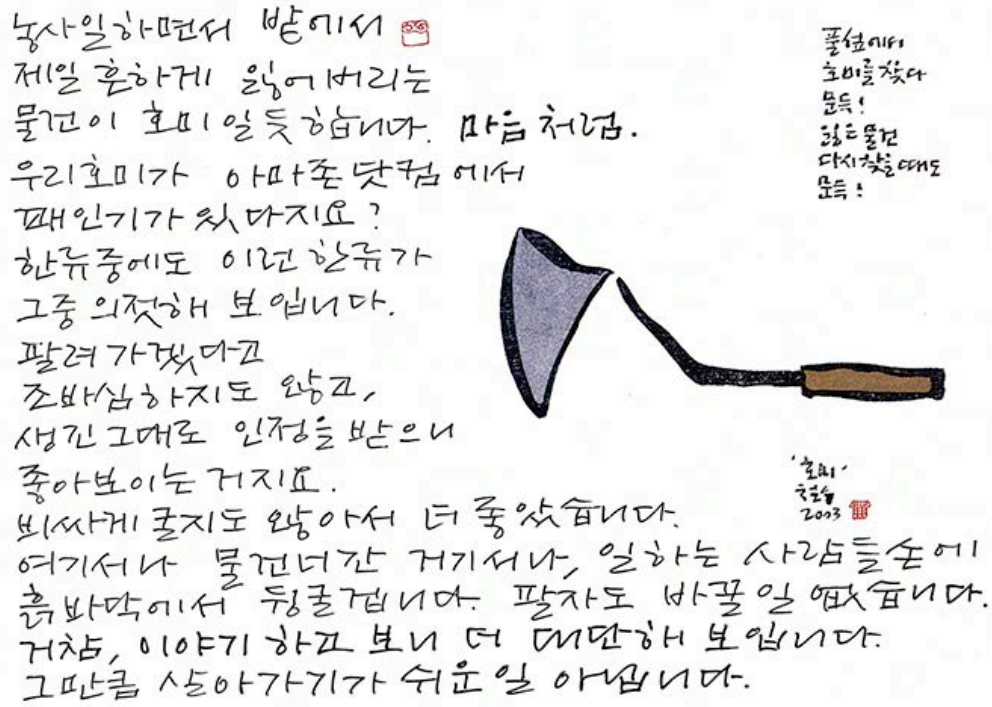 농사일하면서 밭에서
제일 흔하게 잃어버리는
물건이 호미일듯 합니다. 마음처럼.
우리호미가 아마존닷컴에서
꽤인기가 있다지요?
한류중에도 이런 한류가
그중 의젓해 보입니다.
팔려가겠다고
조바심하지도 않고,
생긴 그대로 인정을 받으니
좋아보이는 거지요.
비싸게 굴지도 않아서 더 좋았습니다.
여기서나 물건너간 거기서나, 일하는 사람들손에
흙바닥에서 뒹굴겁니다. 팔자도 바꿀일 없습니다.
거참, 이야기 하고 보니 더 대단해 보입니다.
그만큼 살아가기가 쉬운일 아닙니다.
풀섶에서
호미를 찾다
문득!
잃은 물건
다시찾을때도
문득!
'호미'
철수
2003